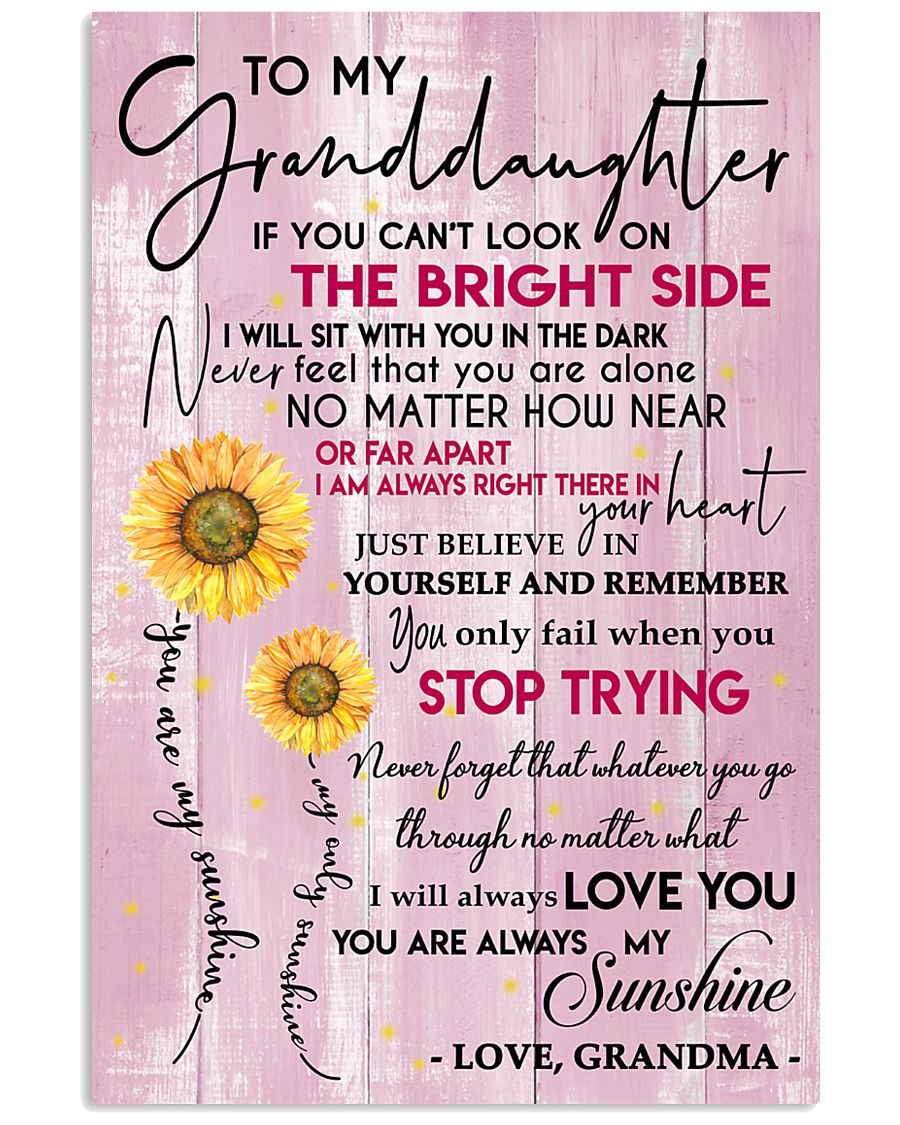 TO MY
Granddaughter
IF YOU CAN'T LOOK ON
THE BRIGHT SIDE
I WILL SIT WITH YOU IN THE DARK
Never feel that you are alone
NO MATTER HOW NEAR
OR FAR APART
I AM ALWAYS RIGHT THERE IN
your heart
JUST BELIEVE IN
YOURSELF AND REMEMBER
You only fail when you
STOP TRYING
Never forget that whatever you go
through no matter what
I will always LOVE YOU
YOU ARE ALWAYS MY
Sunshine
- LOVE, GRANDMA -
you are my sunshine
my only sunshine